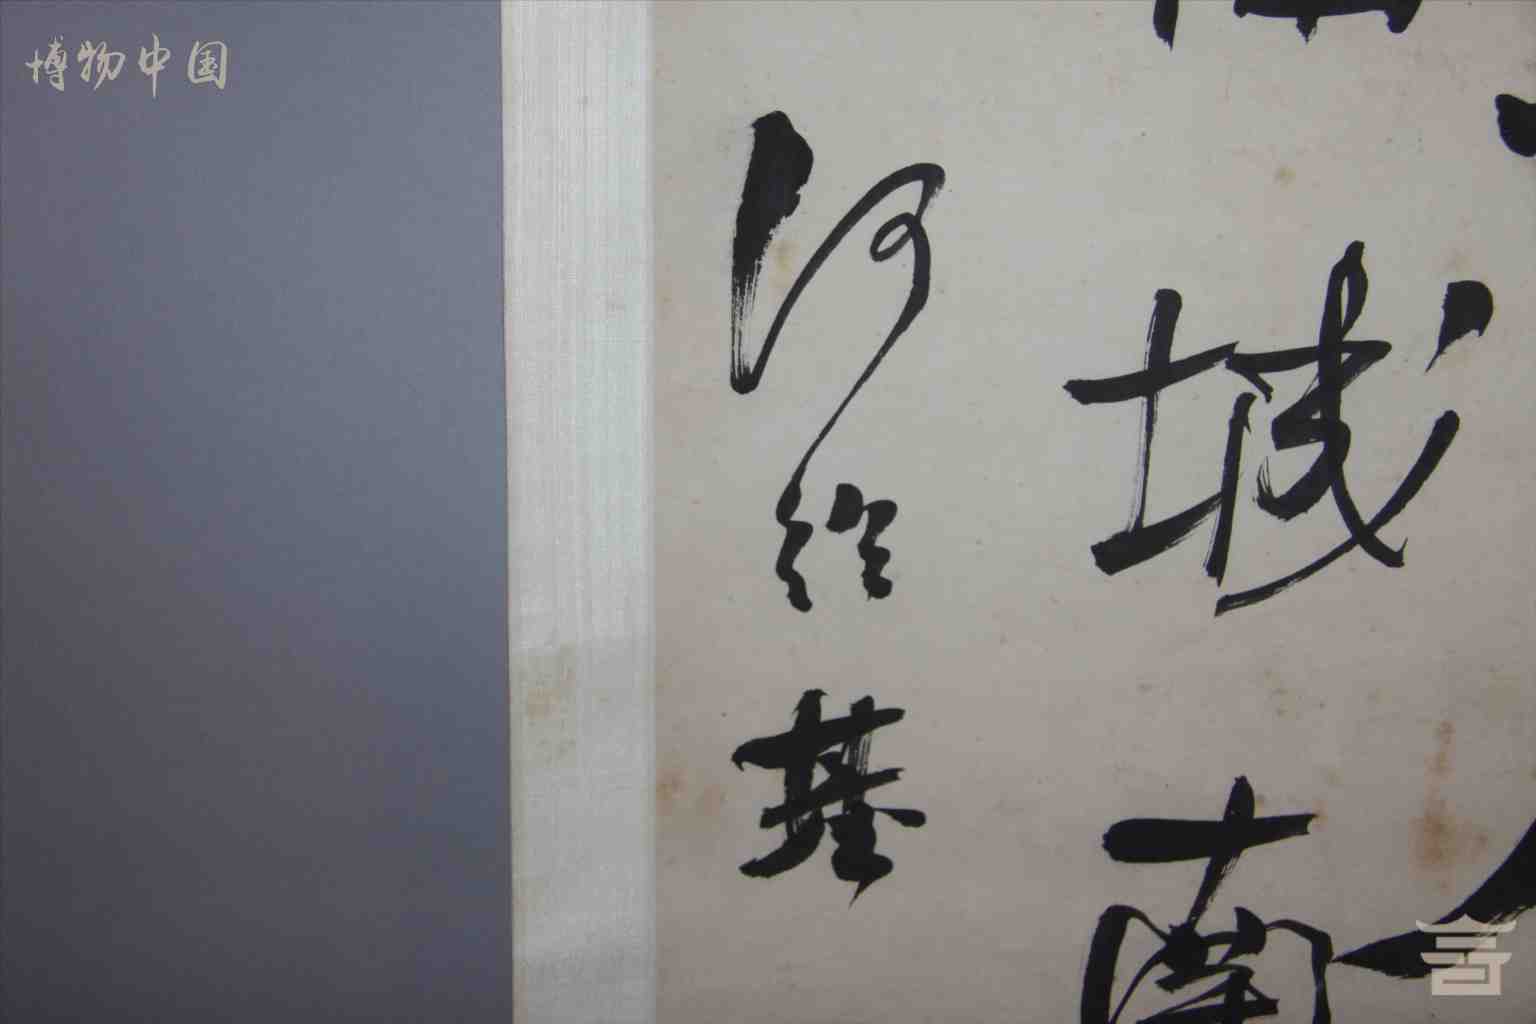 博物中国
城南
何绍基